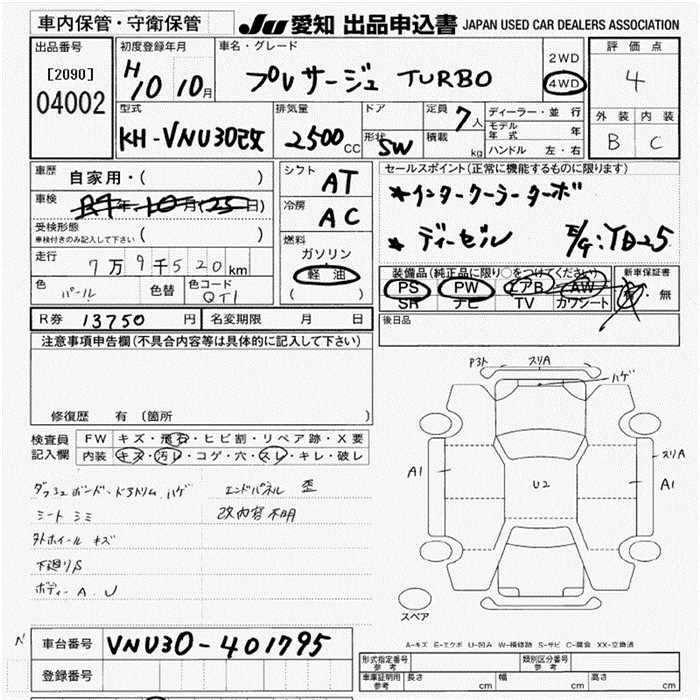 車内保管・守衛保管 JU 愛知 出品申込書 JAPAN USED CAR DEALERS ASSOCIATION
出品番号 初度登録年月 車名・グレード 2WD 評価点
[2090] H10 10月 プレサージュ TURBO 4WD 4
04002 型式 排気量 ドア 定員 7人 ディーラー・並行 外装 内装
KH-VNU30改 2500CC 形状 SW 積載 kg モデル年式 年 B C
ハンドル 左・右
車歴 自家用・( ) シフト AT セールスポイント(正常に機能するものに限ります)
車検 R4年10月(25日) 冷房 AC *インタークーラーターボ
受検形態 *ディーゼル E/G:YD25
車検付きのみ記入して下さい ( ) 燃料
走行 7万9千520km ガソリン 装備品(純正品に限り○をつけてください) 新車保証書
色 パール 色替 色コード QT1 軽油 PS PW エアB AW 有・無
( ) SR ナビ TV カワシート
R券 13750円 名変期限 月 日 後日品
注意事項申告欄(不具合内容等は具体的に記入して下さい)
P3ト スリA
ハゲ
修復歴 有(箇所 )
検査員 FW キズ・飛石・ヒビ割・リペア跡・X要
記入欄 内装 キズ・汚レ・コゲ・穴・スレ・キレ・破レ
スリA
A1 U2 A1
ダッシュボンド・ドアトリム ハゲ エンドパネル 歪
シート シミ 改内容不明
外ホイール キズ
下廻りS
ボディー A. U
スペア
A-キズ E-エクボ U-凹み W-補修跡 S-サビ C-腐食 XX-交換済
N 車台番号 VNU30-401795
登録番号 形式指定番号 参考 類別区分番号 参考
車庫証明用 参考 長さ cm 幅 cm 高さ cm